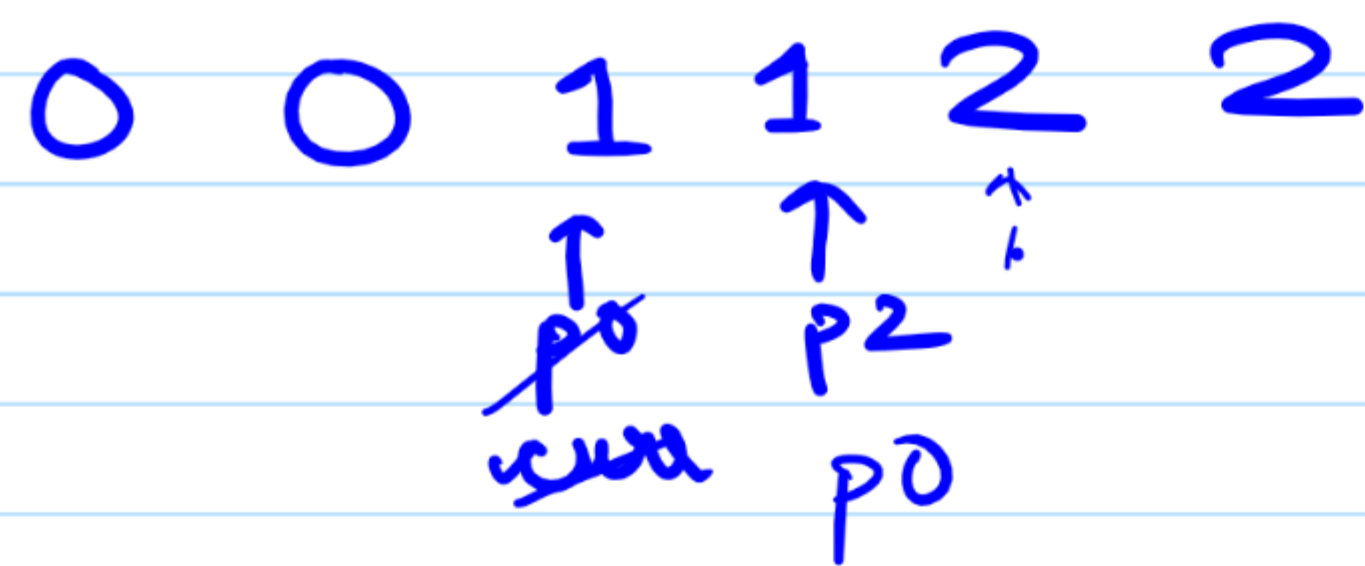 0 0 1 1 2 2
p0 p2
curr p0